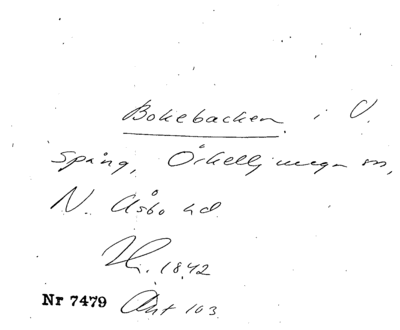 Bokebacken i V.
Spång, Örkelljunga sn,
N. Åsbo hd
1842
Nr 7479 Ant 103